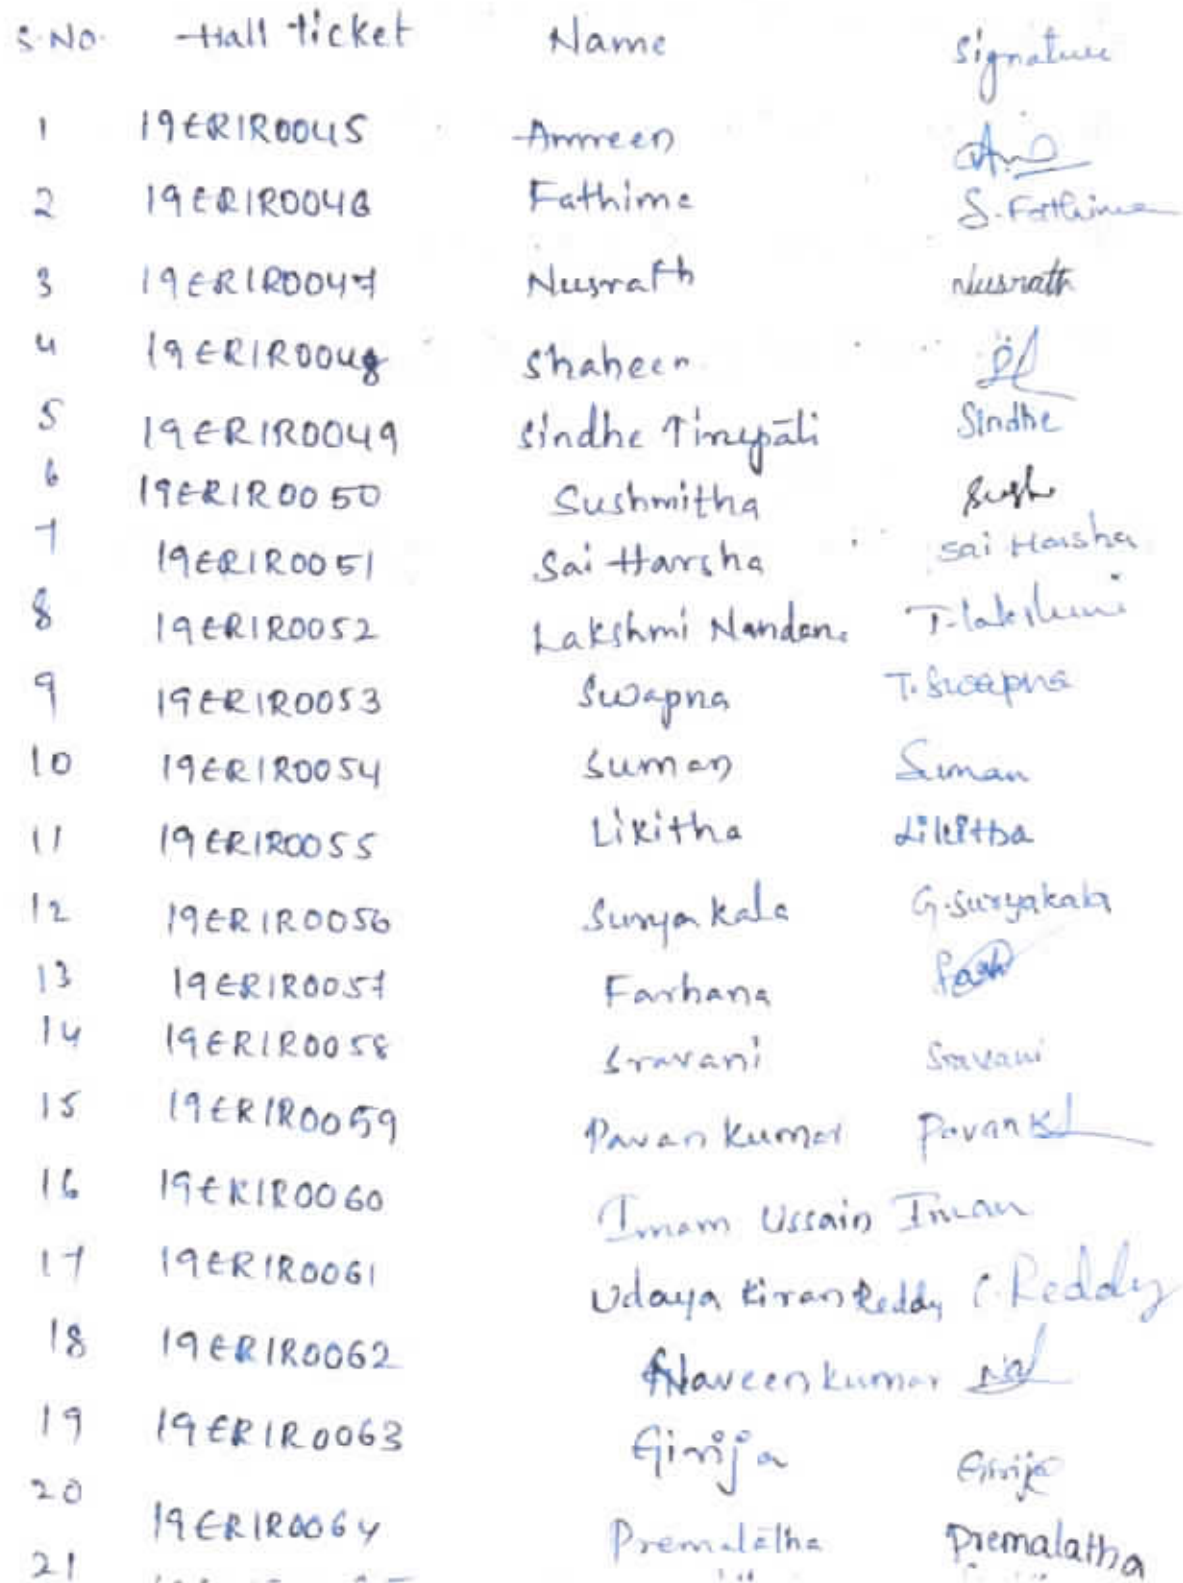 S.No. Hall ticket Name Signature
1 19ER1R0045 Amreen
2 19ER1R0046 Fathima S. Fathima
3 19ER1R0047 Nusrath Nusrath
4 19ER1R0048 Shaheen
5 19ER1R0049 Sindhe Tirupati Sindhe
6 19ER1R0050 Sushmitha Sush
7 19ER1R0051 Sai Harsha Sai Harsha
8 19ER1R0052 Lakshmi Nandana T. Lakshmi
9 19ER1R0053 Swapna T. Swapna
10 19ER1R0054 Suman Suman
11 19ER1R0055 Likitha Likitha
12 19ER1R0056 Surya kala G. Suryakala
13 19ER1R0057 Farhana Farh
14 19ER1R0058 Sravani Sravani
15 19ER1R0059 Pavan Kumar Pavan K
16 19ER1R0060 Imam Ussain Imam
17 19ER1R0061 Udaya Kiran Reddy C. Reddy
18 19ER1R0062 Naveen kumar
19 19ER1R0063 Girija Girija
20 19ER1R0064 Premalatha Premalatha
21